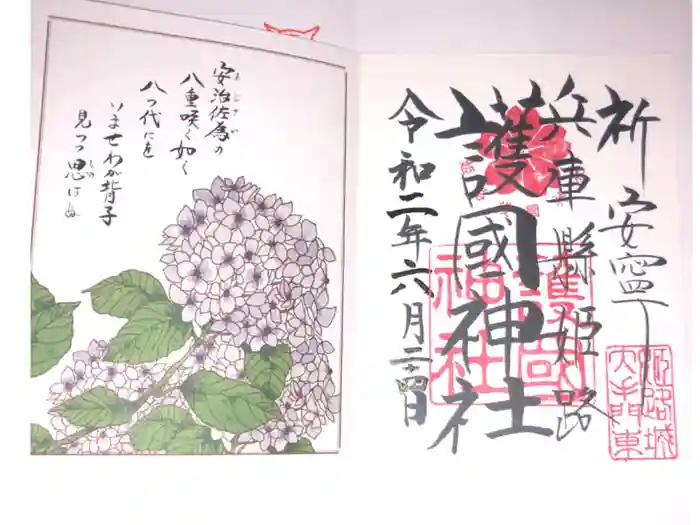 安治佐為の
あじさゐ
八重咲く如く
八つ代にを
いませわが背子
見つつ思はむ
しの
祈 安寧
兵庫縣姫路
護國神社
令和二年六月二十四日
護國
神社
姫路城
大手門東